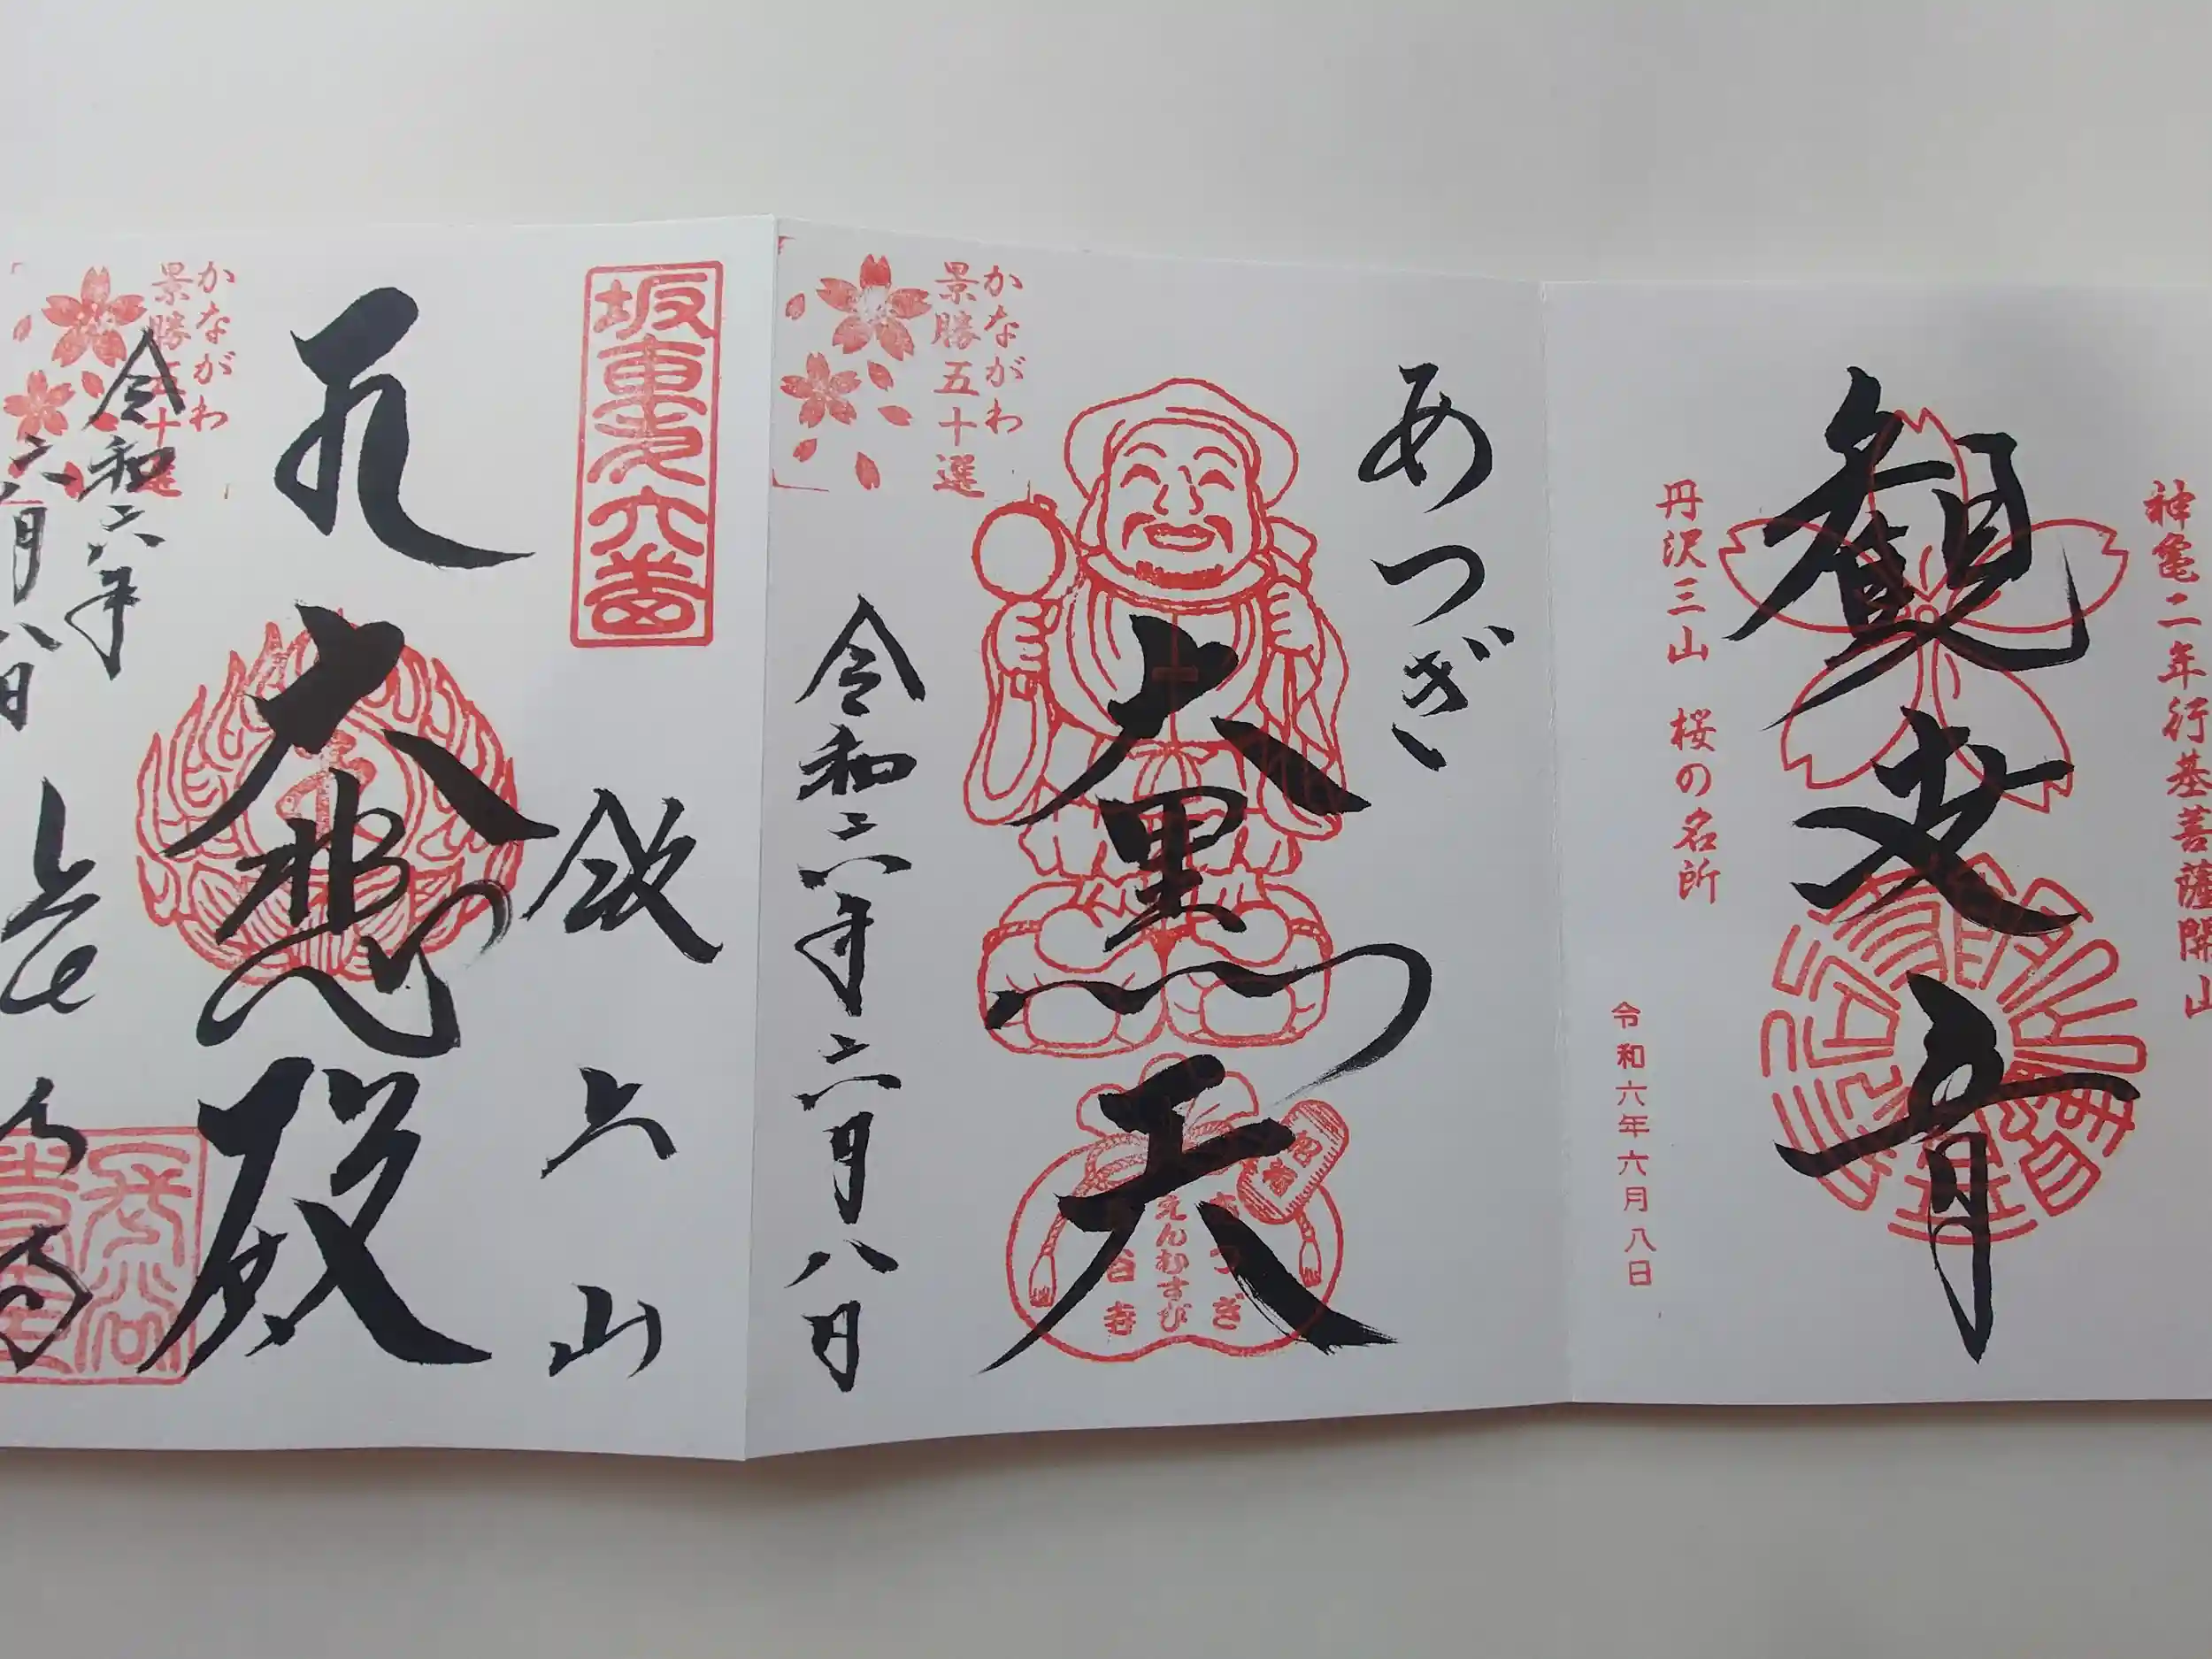 神亀二年行基菩薩開山
観世音
丹沢三山 桜の名所
令和六年六月八日
あつぎ
大黒天
かながわ
景勝五十選
令和六年六月八日
あつぎ
えんむすび
谷寺
坂東第六番
飯上山
大悲殿
かながわ
景勝五十選
令和六年
六月八日
長谷